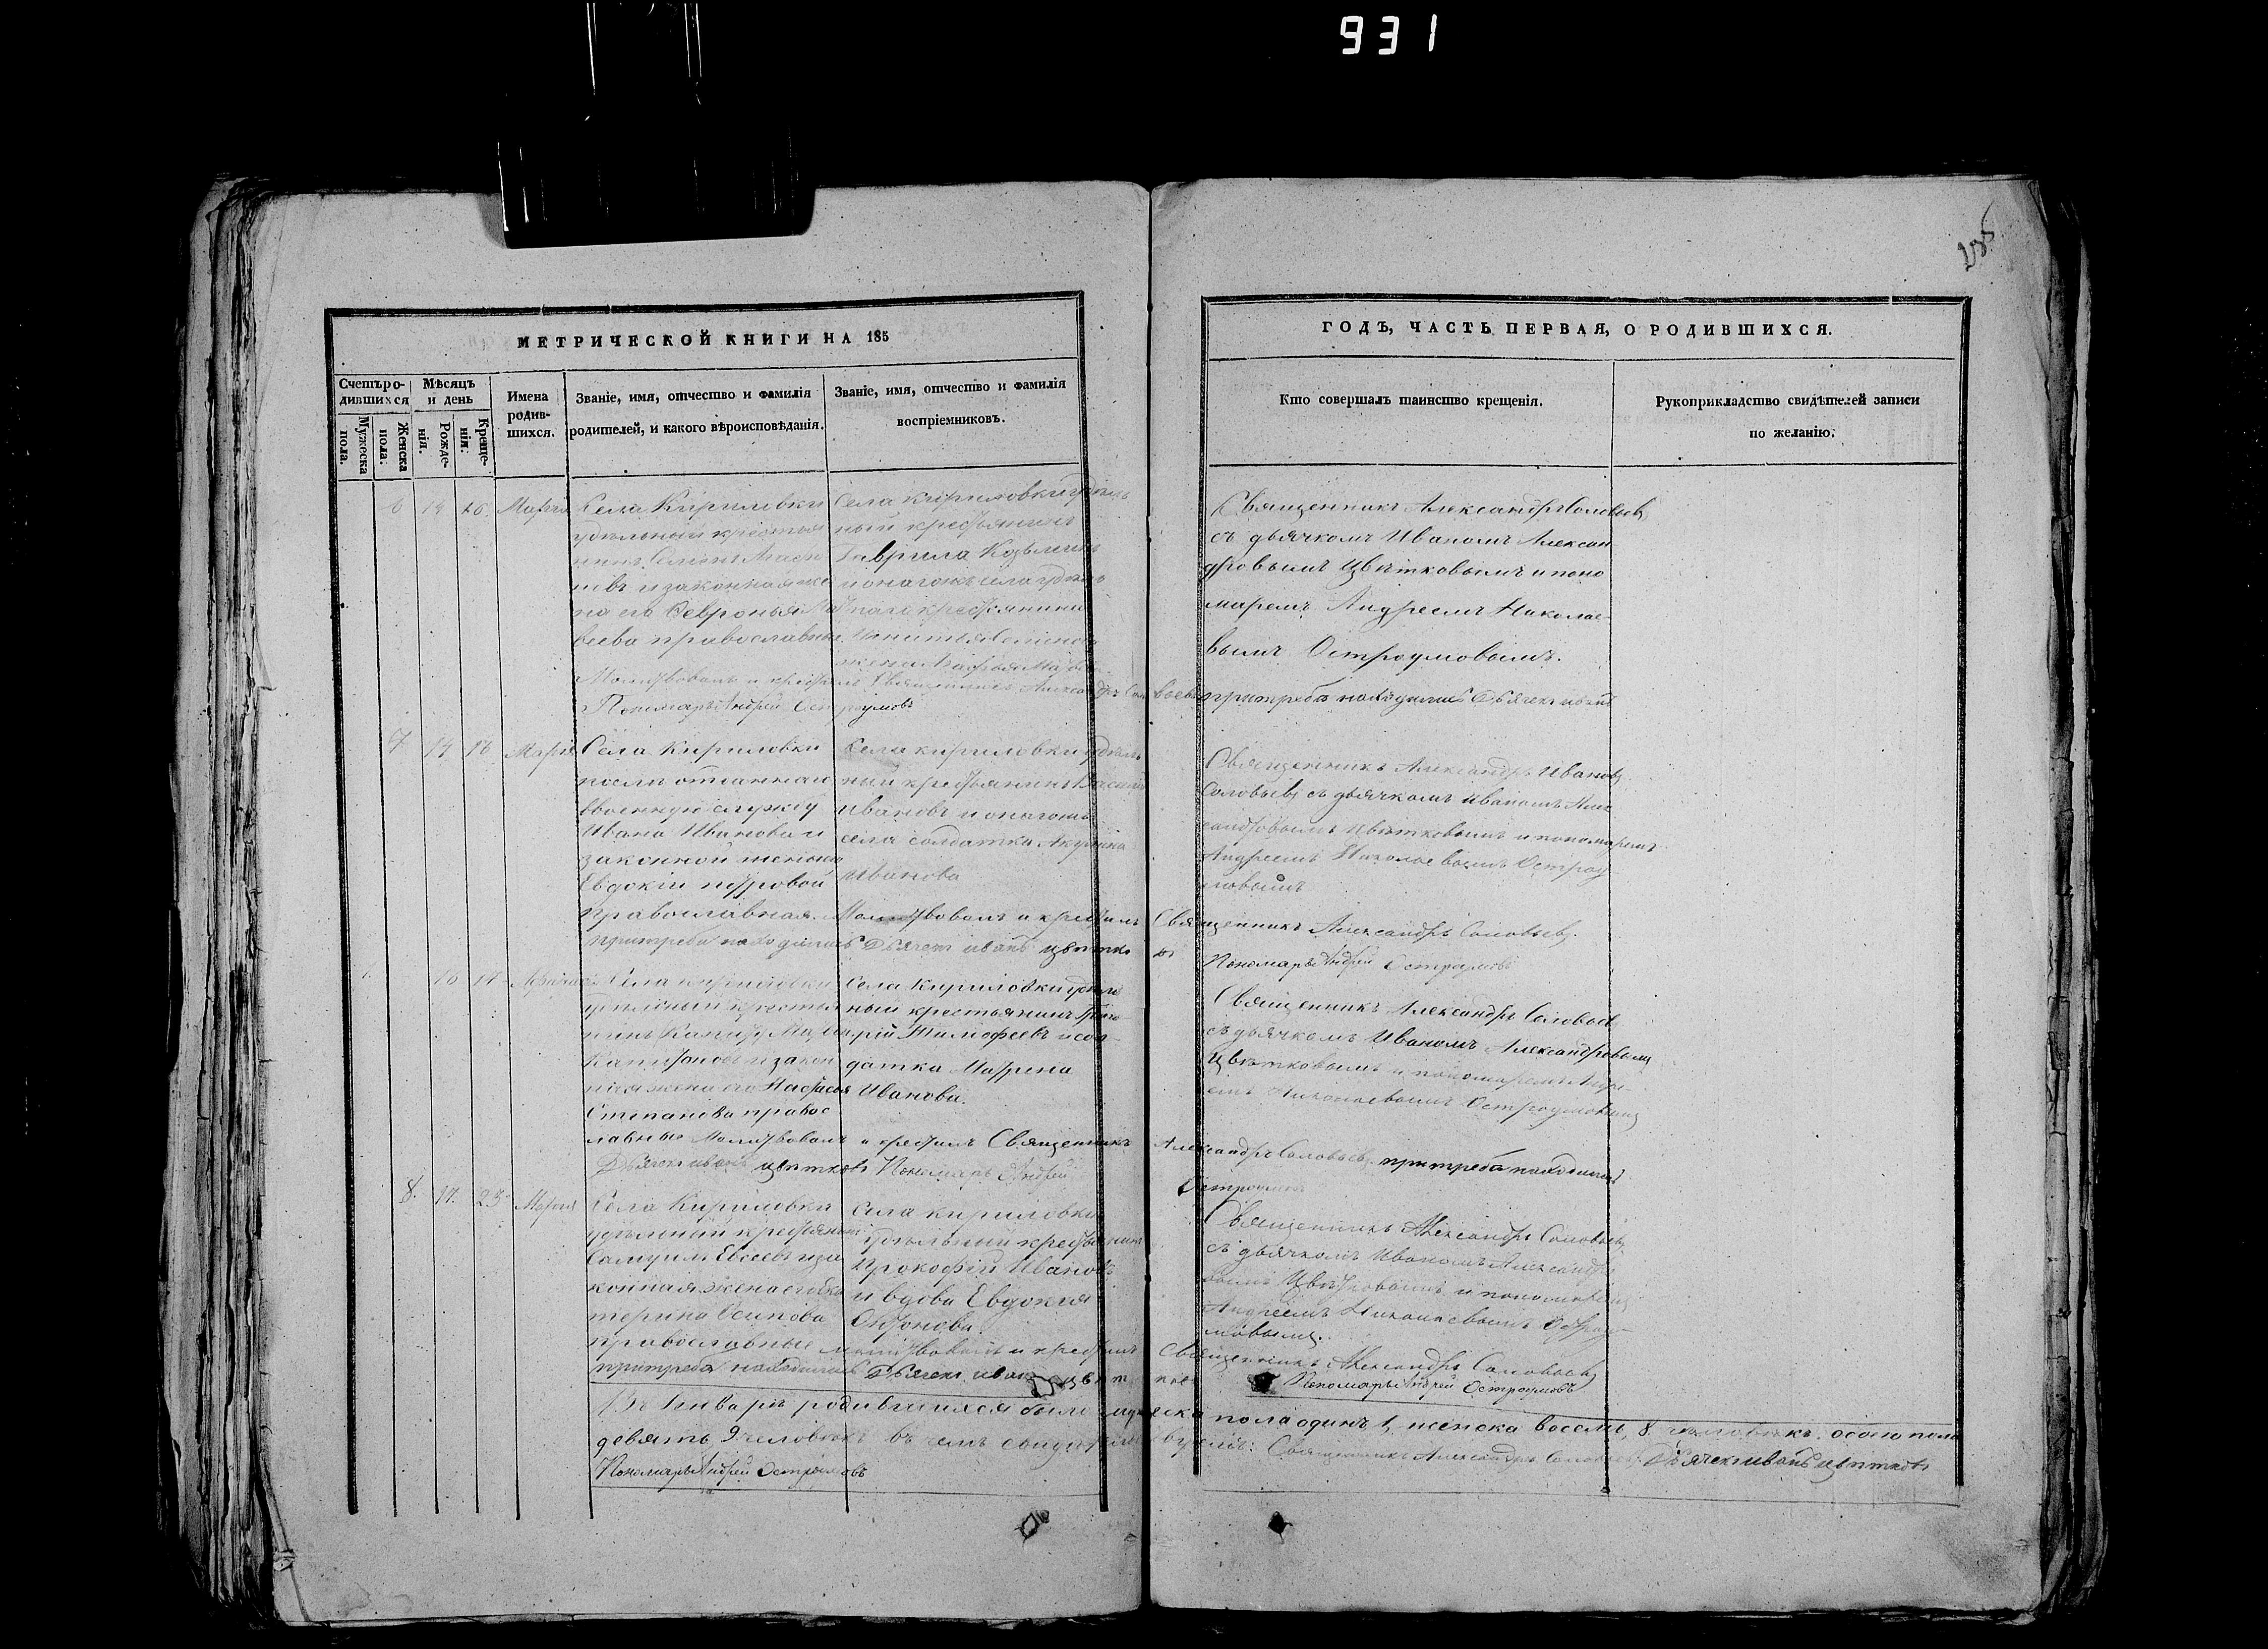 931
135
МЕТРИЧЕСКОЙ КНИГИ НА 185
Счетъ родившихся
Мужеска пола.
Женска пола.
Мѣсяцъ и день
Рожденія.
Крещенія.
Имена родившихся.
Званіе, имя, отчество и фамилія
родителей, и какого вѣроисповѣданія.
Званіе, имя, отчество и фамилія
воспріемниковъ.
ГОДЪ, ЧАСТЬ ПЕРВАЯ, О РОДИВШИХСЯ.
Кто совершалъ таинство крещенія.
Рукоприкладство свидѣтелей записи
по желанію.
6 14 16. Марія
Села Кириловки
удѣльный крестья
нинъ
и законная же
на его Февронья
православные
Села Кириловки удѣль
ный крестьянинъ
Гаврила
и онагожъ села удѣль
наго крестьянина
жена
Священникъ Александръ Соловьевъ
съ дьячкомъ Иваномъ Алексан
дровымъ Цвѣтковымъ и поно
маремъ Андреемъ Николае-
вымъ Остроумовымъ.
Молитвовалъ и крестилъ Священникъ Александръ Соловьевъ при требѣ находились Дьячекъ иванъ
Пономарь Андрей Остроумовъ
7 14 16 Марія
Села Кириловки
военную службу
Ивана Иванова и
законной жены
Евдокіи Петровой
православная.
Села кириловки удѣль
ный крестьянинъ Василій
Ивановъ и онагожъ
села солдатка Акулина
Иванова
Священникъ Александръ Ивановъ
Соловьевъ съ дьячкомъ иваномъ Алек
сандровымъ Цвѣтковымъ и пономаремъ
Андреемъ Николаевымъ Остроу
мовымъ
Молитвовалъ и крестилъ Священникъ Александръ Соловьевъ.
при требѣ находились Дьячекъ иванъ цвѣтковъ Пономарь Андрей Остроумовъ
1.
Села Кириловки
удѣльный крестья
нинъ
и закон
ная жена его Настасья
Степанова правос
лавные
Села Кириловки удѣль
ный крестьянинъ Григо
рій Тимофеевъ и сол
датка Матрена
Иванова.
Священникъ Александръ Соловьевъ
съ дьячкомъ Иваномъ Александровымъ
Цвѣтковымъ и пономаремъ Андре-
емъ Николаевымъ Остроумовымъ
Молитвовалъ и крестилъ Священникъ Александръ Соловьевъ, при требѣ находились
Дьячекъ иванъ цвѣтковъ Пономарь Андрей Остроумовъ
8. 17. 23 Марія
Села Кириловки
удѣльный крестьянинъ
Самуилъ Евсеевъ и за
конная жена его Ека
терина Осипова
православные
Села Кириловки
удѣльный крестьянинъ
Прокофій Ивановъ
и вдова Евдокія
Священникъ Александръ Соловьевъ
съ дьячкомъ Иваномъ Александро
вымъ Цвѣтковымъ и пономаремъ
Андреемъ Николаевымъ Остроу-
мовымъ.
молитвовалъ и крестилъ Священникъ Александръ Соловьевъ
при требѣ находились Дьячекъ иванъ цвѣтковъ Пономарь Андрей Остроумовъ
Въ Генварѣ родившихся было мужеска пола одинъ 1, женска восемь, 8 человѣкъ. обоего пола
девять, 9 человѣкъ въ чемъ свидѣтельствуемъ: Священникъ Александръ Соловьевъ. Дьячекъ иванъ цвѣтковъ
Пономарь Андрей Остроумовъ